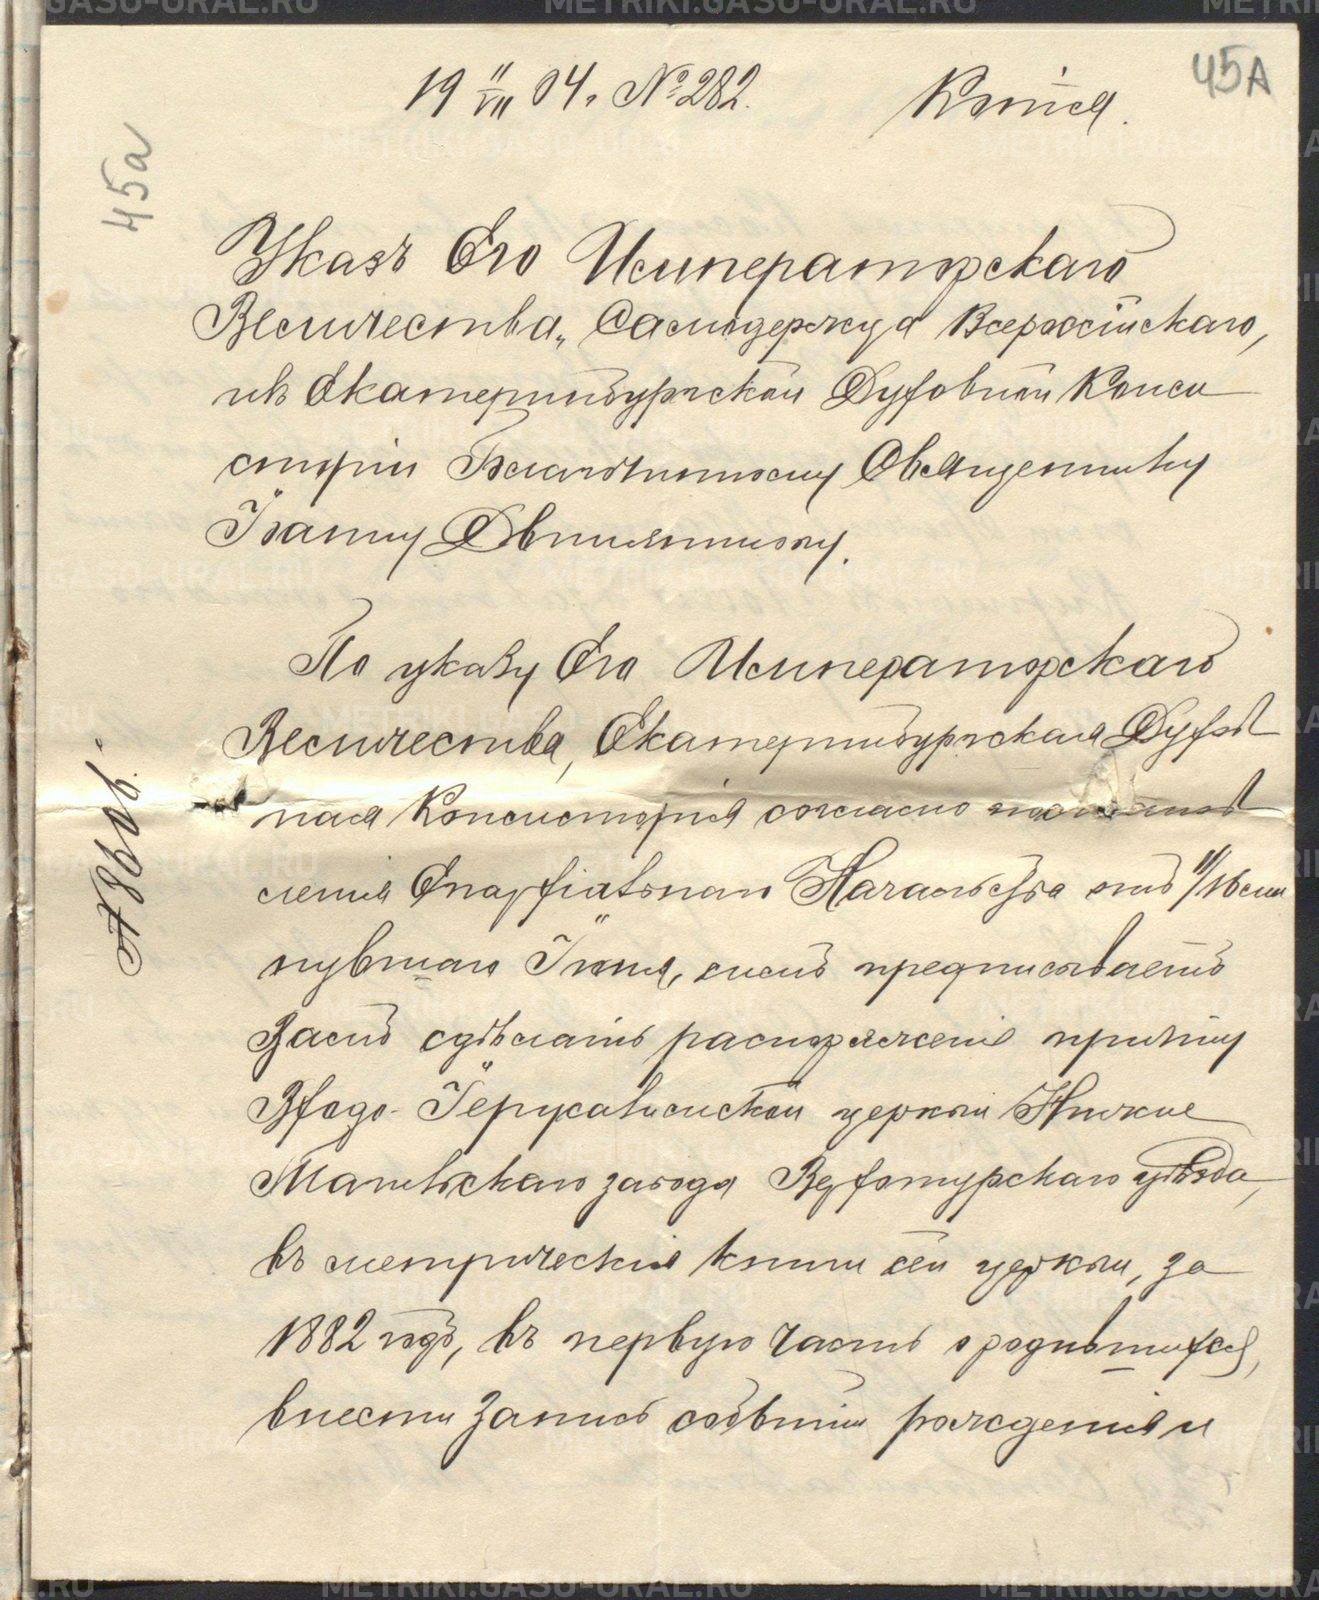 19 11/VII 04. № 282.
Копiя.
45А
45а
Указъ Его Императорскаго
Величества, Самодержца Всероссiйскаго,
изъ Екатеринбургской Духовной Конси
сторiи Благочинному Священнику
Iоанну
По указу Его Императорскаго
Величества, Екатеринбургская Духов
ная Консисторiя согласно постанов
ленiя Епархiальнаго Начальства отъ 11/16 ми
нувшаго Iюня, симъ предписываетъ
Вамъ сдѣлать распоряженiе причту
Входо-Iерусалимской церкви Нижне
Тагильскаго завода Верхотурскаго уѣзда,
въ метрическiя книги сей церкви, за
1882 годъ, въ первую часть о родившихся,
внести запись событiи рожденiя и
METRIKI.GASU-URAL.RU